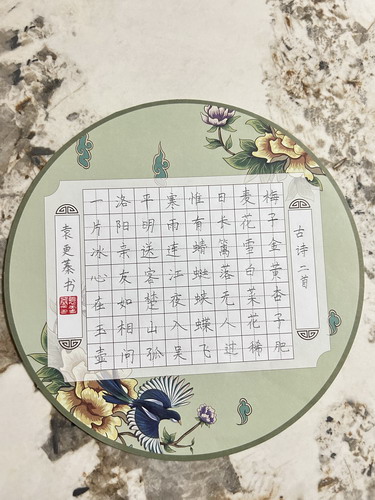 古诗二首
梅子金黄杏子肥
麦花雪白菜花稀
日长篱落无人过
惟有蜻蜓蛱蝶飞
寒雨连江夜入吴
平明送客楚山孤
洛阳亲友如相问
一片冰心在玉壶
袁更蓁书